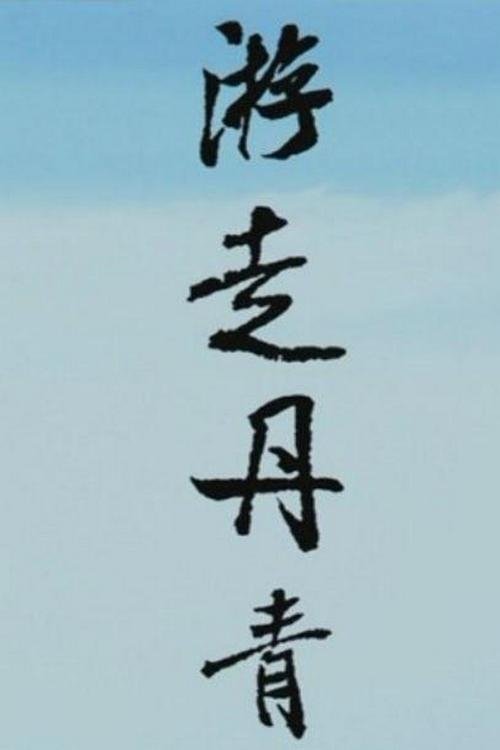 游走丹青